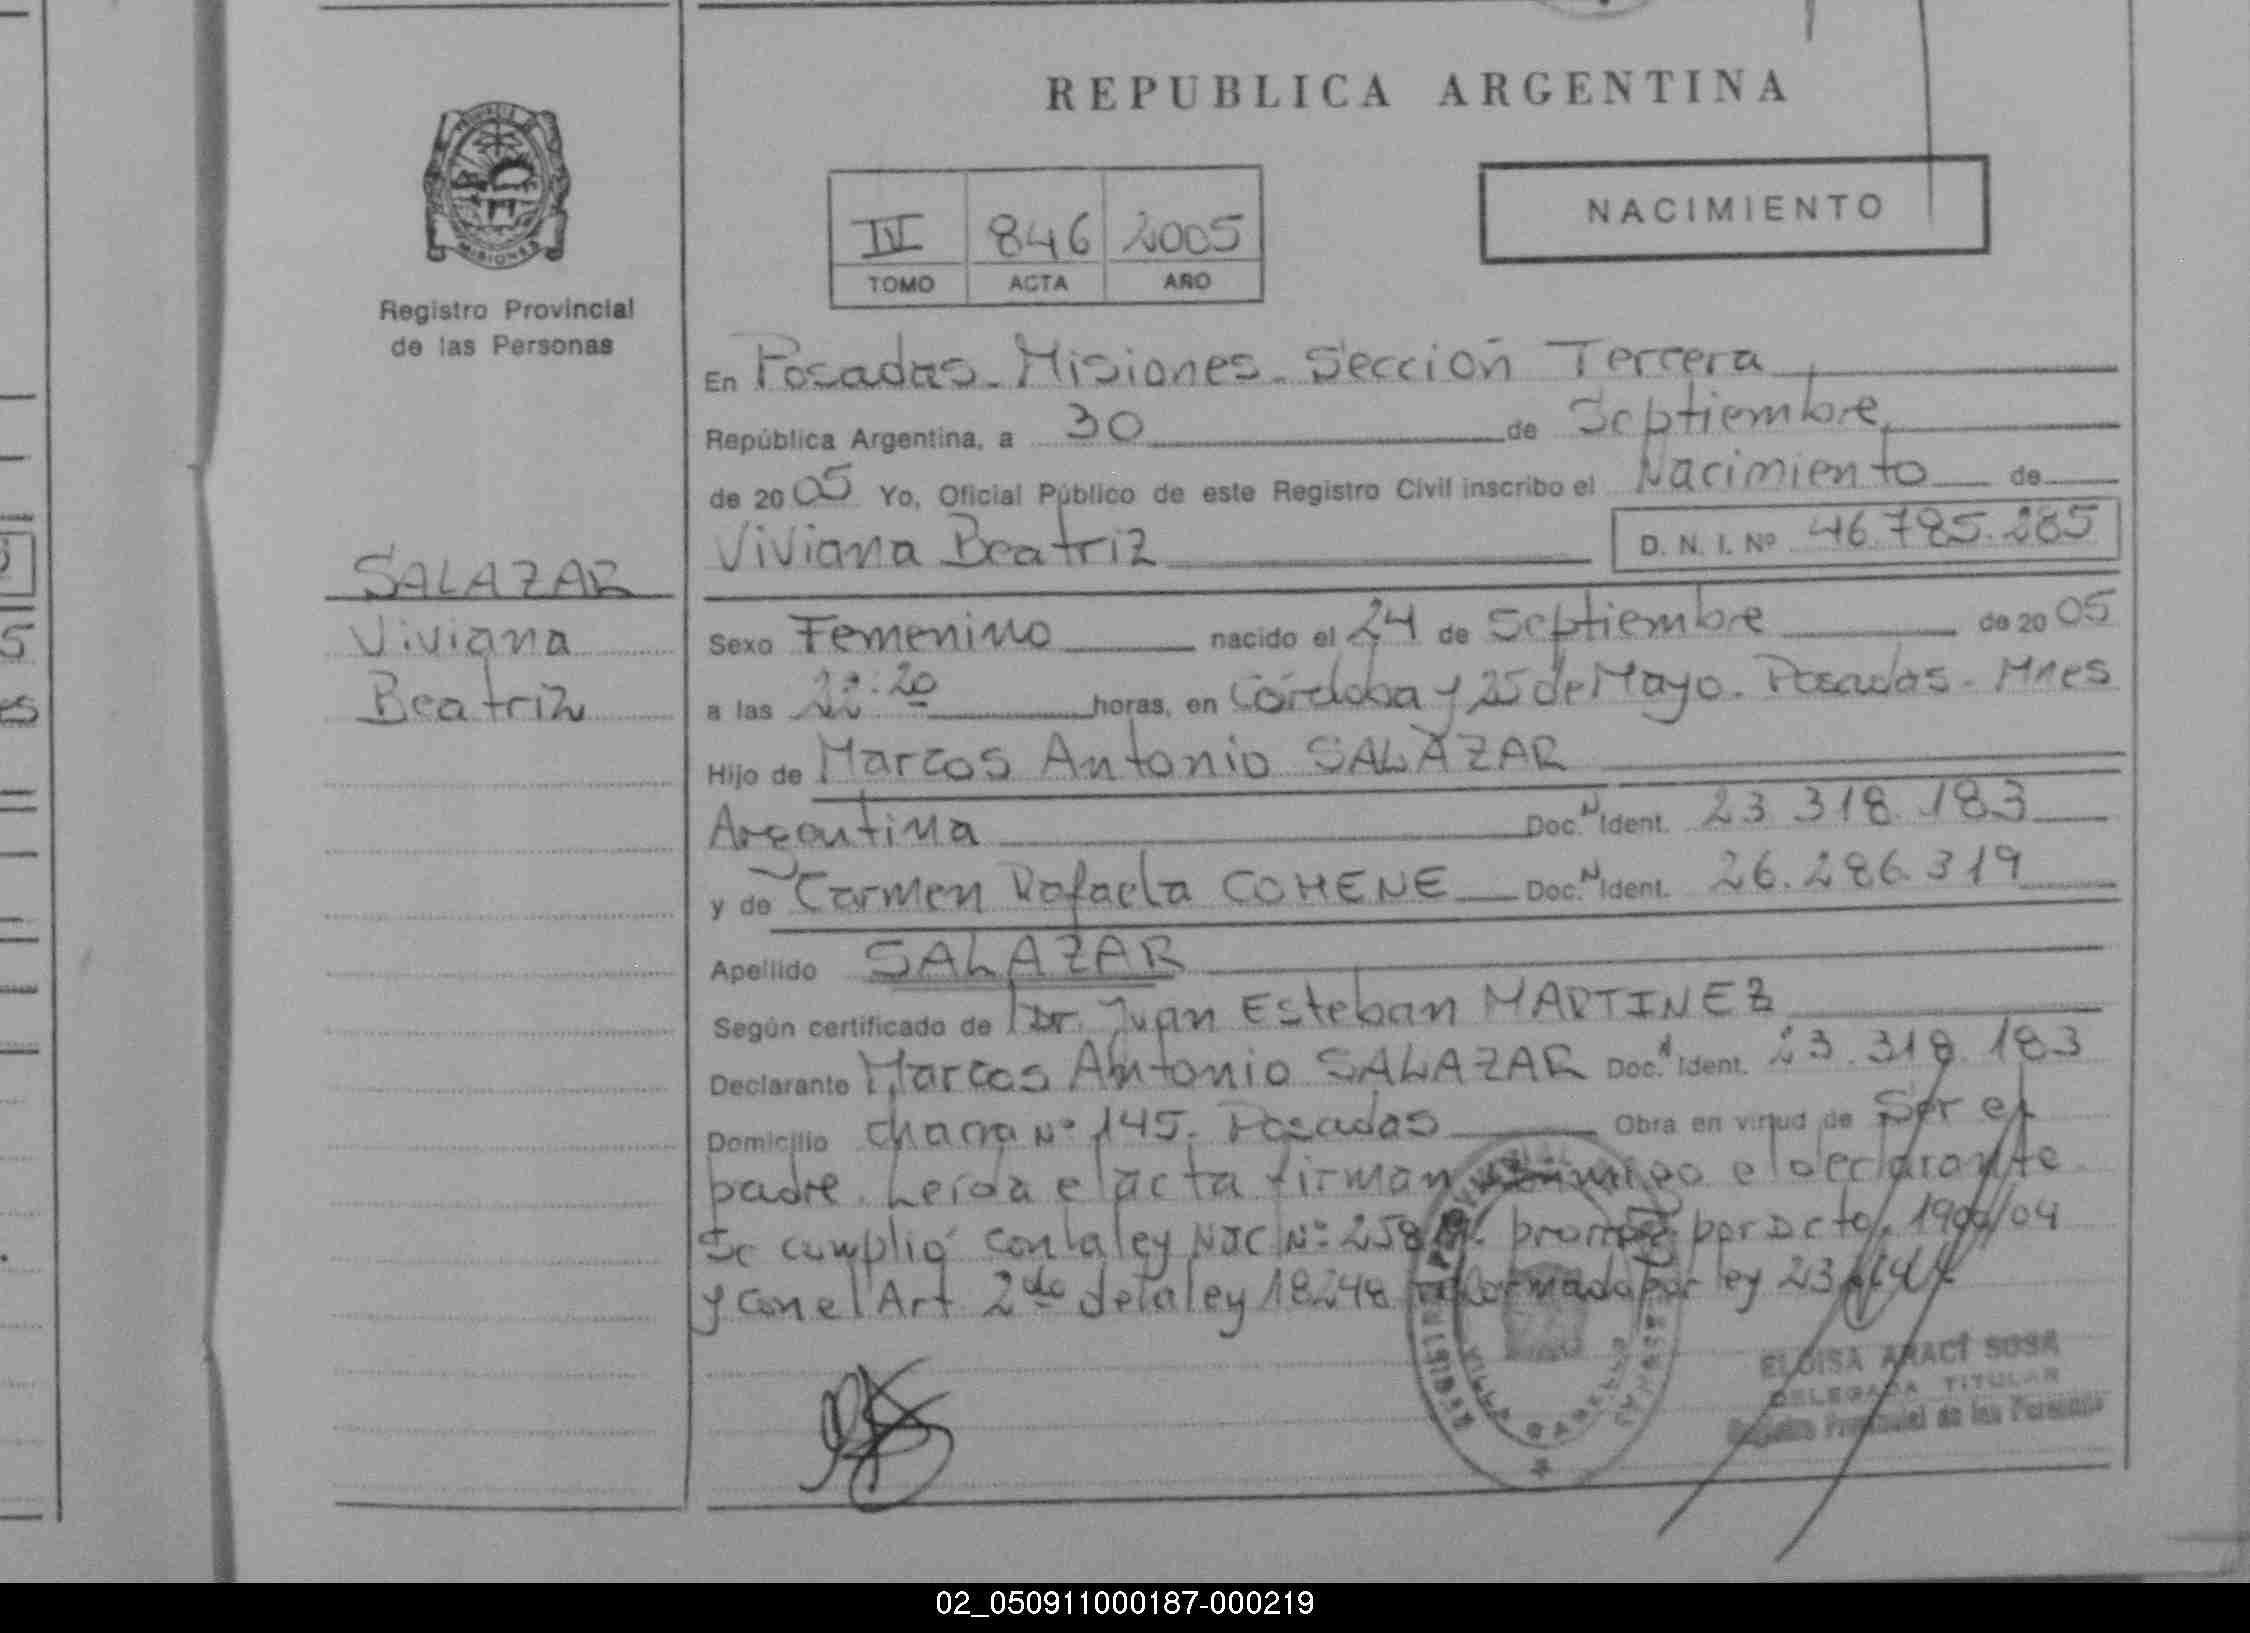 REPUBLICA ARGENTINA
PROVINCIA DE
MISIONES
Registro Provincial
de las Personas
IV 846 2005
TOMO ACTA AÑO
NACIMIENTO
En Posadas - Misiones - Sección Tercera
República Argentina, a 30 de Septiembre
de 2005 Yo, Oficial Público de este Registro Civil inscribo el Nacimiento de
Viviana Beatriz D. N. I. Nº 46.785.285
SALAZAR
Viviana
Beatriz
Sexo Femenino nacido el 24 de Septiembre de 2005
a las 22:20 horas, en Córdoba y 25 de Mayo. Posadas - Mnes
Hijo de Marcos Antonio SALAZAR
Argentina Doc. N Ident. 23.318.183
y de Carmen Rafaela COHENE Doc. N Ident. 26.286.319
Apellido SALAZAR
Según certificado de Dr. Juan Esteban MARTINEZ
Declarante Marcos Antonio SALAZAR Doc. Ident. 23.318.183
Domicilio chacra Nº 145. Posadas Obra en virtud de Ser el
padre. Leída el acta firman conmigo el declarante
Se cumplió con la ley NAC Nº 258 por Dcto. 04
y con el Art 2do de la ley 18248 por ley 23
VILLA CABELLO
ELOISA ARACI SOSA
DELEGADA TITULAR
Registro Provincial de las Personas
02_050911000187-000219